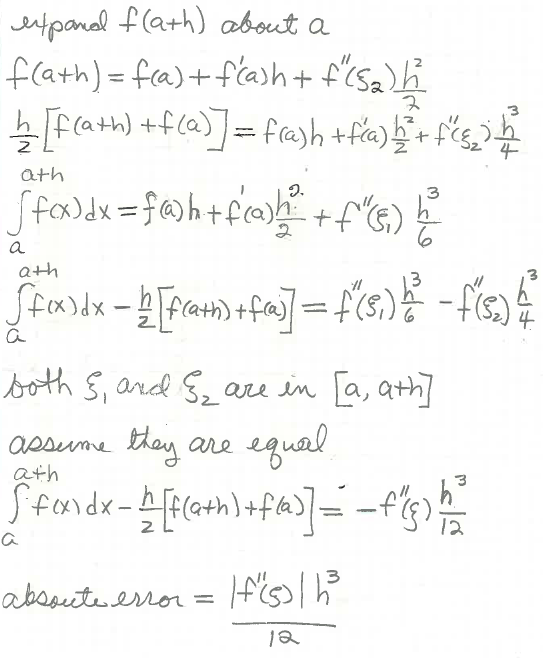 expand f(a+h) about a
f(a+h) = f(a) + f'(a)h + f''(ξ₂) h²/2
h/2 [f(a+h) + f(a)] = f(a)h + f'(a) h²/2 + f''(ξ₂) h³/4
∫ₐᵃ⁺ʰ f(x)dx = f(a)h + f'(a) h²/2 + f''(ξ₁) h³/6
∫ₐᵃ⁺ʰ f(x)dx - h/2 [f(a+h) + f(a)] = f''(ξ₁) h³/6 - f''(ξ₂) h³/4
both ξ₁ and ξ₂ are in [a, a+h]
assume they are equal
∫ₐᵃ⁺ʰ f(x)dx - h/2 [f(a+h) + f(a)] = - f''(ξ) h³/12
absoute error = |f''(ξ)| h³/12